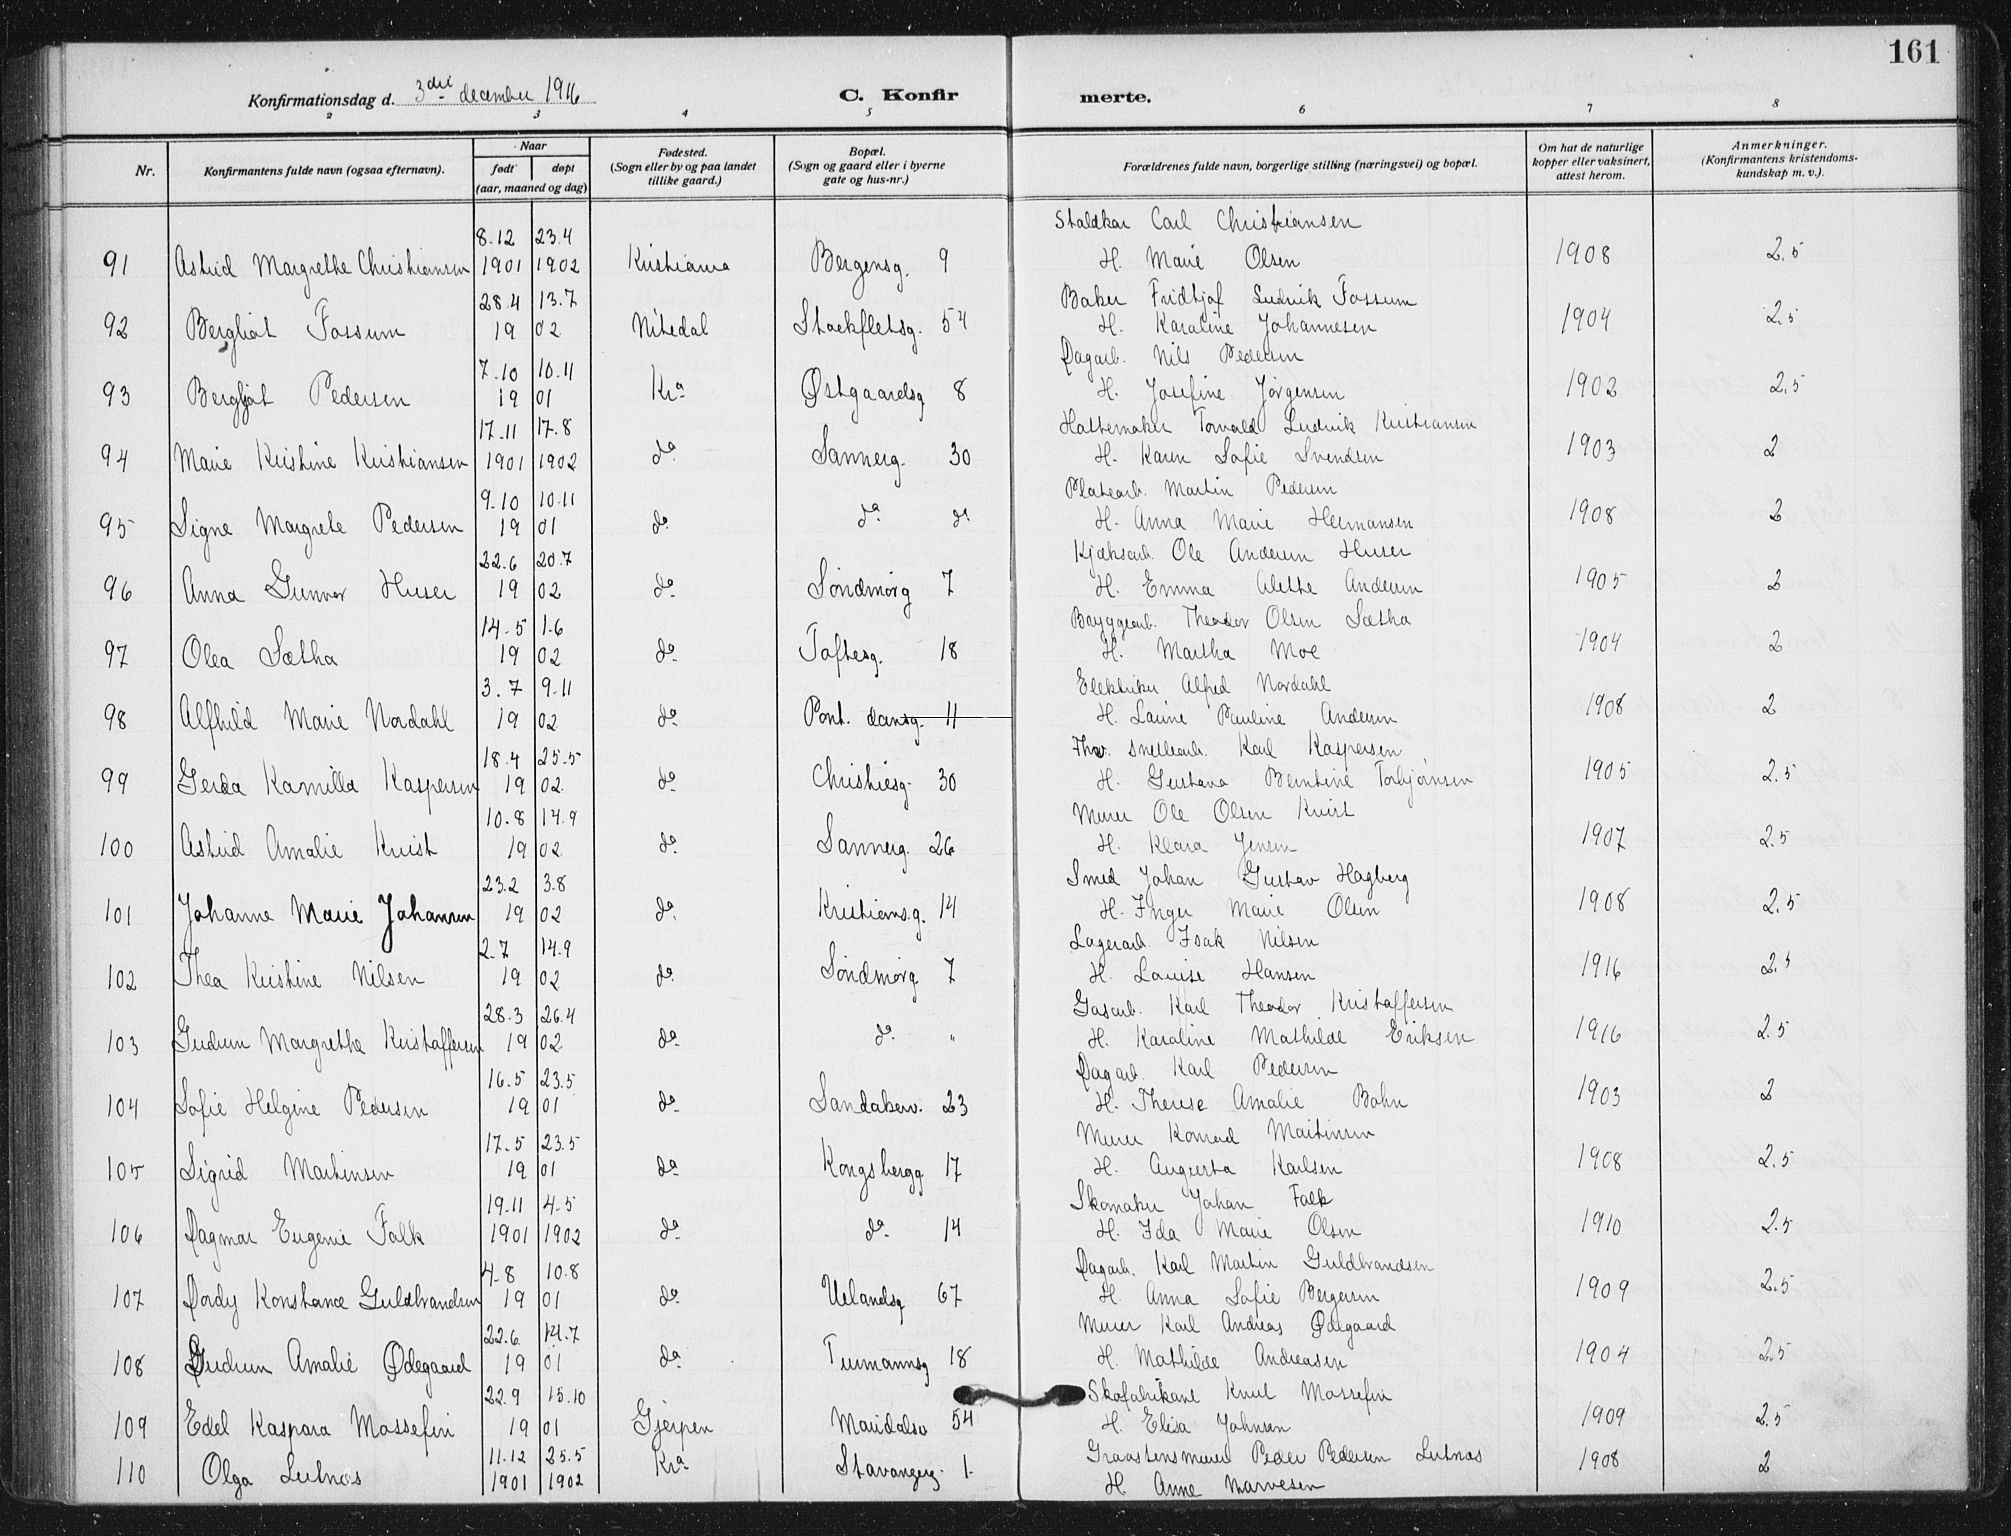 161
Konfirmationsdag d. 3die december 1916
C. Konfir merte.
2 3 4 5 6 7 8
Nr.
Konfirmantens fulde navn (ogsaa efternavn).
Naar
født døpt
(aar, maaned og dag)
Fødested.
(Sogn eller by og paa landet
tillike gaard.)
Bopæl.
(Sogn og gaard eller i byerne
gate og hus-nr.)
Forældrenes fulde navn, borgerlige stilling (næringsvei) og bopæl.
Om hat de naturlige
kopper eller vaksinert,
attest herom.
Anmerkninger.
(Konfirmantens kristendoms-
kundskap m. v.).
8.12 23.4 Staldkar Carl Christiansen
91 Astrid Margrethe Christiansen 1901 1902 Kristiania Bergensg. 9 H. Marie Olsen 1908 2.5
28.4 13.7 Baker Fridtjof Ludvik Fossum
92 Bergliot Fossum 19 02 Nitedal Stockfletsg. 54 H. Karoline Johannesen 1904 2.5
7.10 10.11 Dagarb. Nils Pedersen
93 Bergljot Pedersen 19 01 Kra Østgaardsg 8 H. Josefine Jørgensen 1902 2.5
17.11 17.8 Hattemaker Torvald Ludvik Kristiansen
94 Marie Kristine Kristiansen 1901 1902 do Sannerg. 30 H. Karen Sofie Svendsen 1903 2
9.10 10.11 Platearb. Martin Pedersen
95 Signe Margrete Pedersen 19 01 do do do H. Anna Marie Hermansen 1908 2
22.6 20.7 Kjæksarb. Ole Andersen Huser
96 Anna Gunvor Huser 19 02 do Søndmørg 7 H. Emma Alethe Andersen 1905 2
14.5 1.6 Bryggearb. Theodor Olsen Sætha
97 Olea Sætha 19 02 do Toftesg. 18 H. Martha Moe 1904 2
3.7 9.11 Elektriker Alfred Nordahl
98 Alfhild Marie Nordahl 19 02 do Pont. dansg. 11 H. Laurine Pauline Andersen 1908 2
18.4 25.5 Karl Kaspersen
99 Gerda Kamilla Kaspersen 19 02 do Christiesg. 30 H. Gustava Berntine Torbjørnsen 1905 2.5
10.8 14.9 Murer Ole Olsen Kvist
100 Astrid Amalie Kvist 19 02 do Sannerg. 26 H. Klara Jensen 1907 2.5
23.2 3.8 Smed Johan Gustav Hagberg
101 Johanne Marie Johansen 19 02 do Kristians.g. 14 H. Inger Marie Olsen 1908 2.5
2.7 14.9 Lagerarb. Isak Nilsen
102 Thea Kristine Nilsen 19 02 do Søndmørg 7 H. Louise Hansen 1916 2.5
28.3 26.4 Gasarb. Karl Theodor Kristoffersen
103 Gudrun Margrethe Kristoffersen 19 02 do do " H. Karoline Mathilde Eriksen 1916 2.5
16.5 23.5 Dagarb. Karl Pedersen
104 Sofie Helgine Pedersen 19 01 do Sandakerv. 23 H. Therese Amalie Bohn 1903 2
17.5 23.5 Murer Konrad Martinsen
105 Sigrid Martinsen 19 01 do Kongsbergg 17 H. Augusta Karlsen 1908 2.5
19.11 4.5 Skomaker Johan Falk
106 Dagmar Eugenie Falk 1901 1902 do do 14 H. Ida Marie Olsen 1910 2.5
4.8 10.8 Dagarb. Karl Martin Guldbrandsen
107 Dordy Konstance Guldbrandsen 19 01 do Uelandsg 67 H. Anna Sofie Bergersen 1909 2.5
22.6 14.7 Murer Karl Andreas Ødegaard
108 Gudrun Amalie Ødegaard 19 01 do Tuemannsg 18 H. Mathilde Andreasen 1904 2.5
22.9 15.10 Skofabrikant Knut Mossefin
109 Edel Kaspara Mossefin 19 01 Gjerpen Maridalsv 54 H. Elisa Johnsen 1909 2.5
11.12 25.5 Graastensmurer Peder Pedersen Lutnæs
110 Olga Lutnæs 1901 1902 Kra Stavangerg. 1. H. Anne Marvesen 1908 2